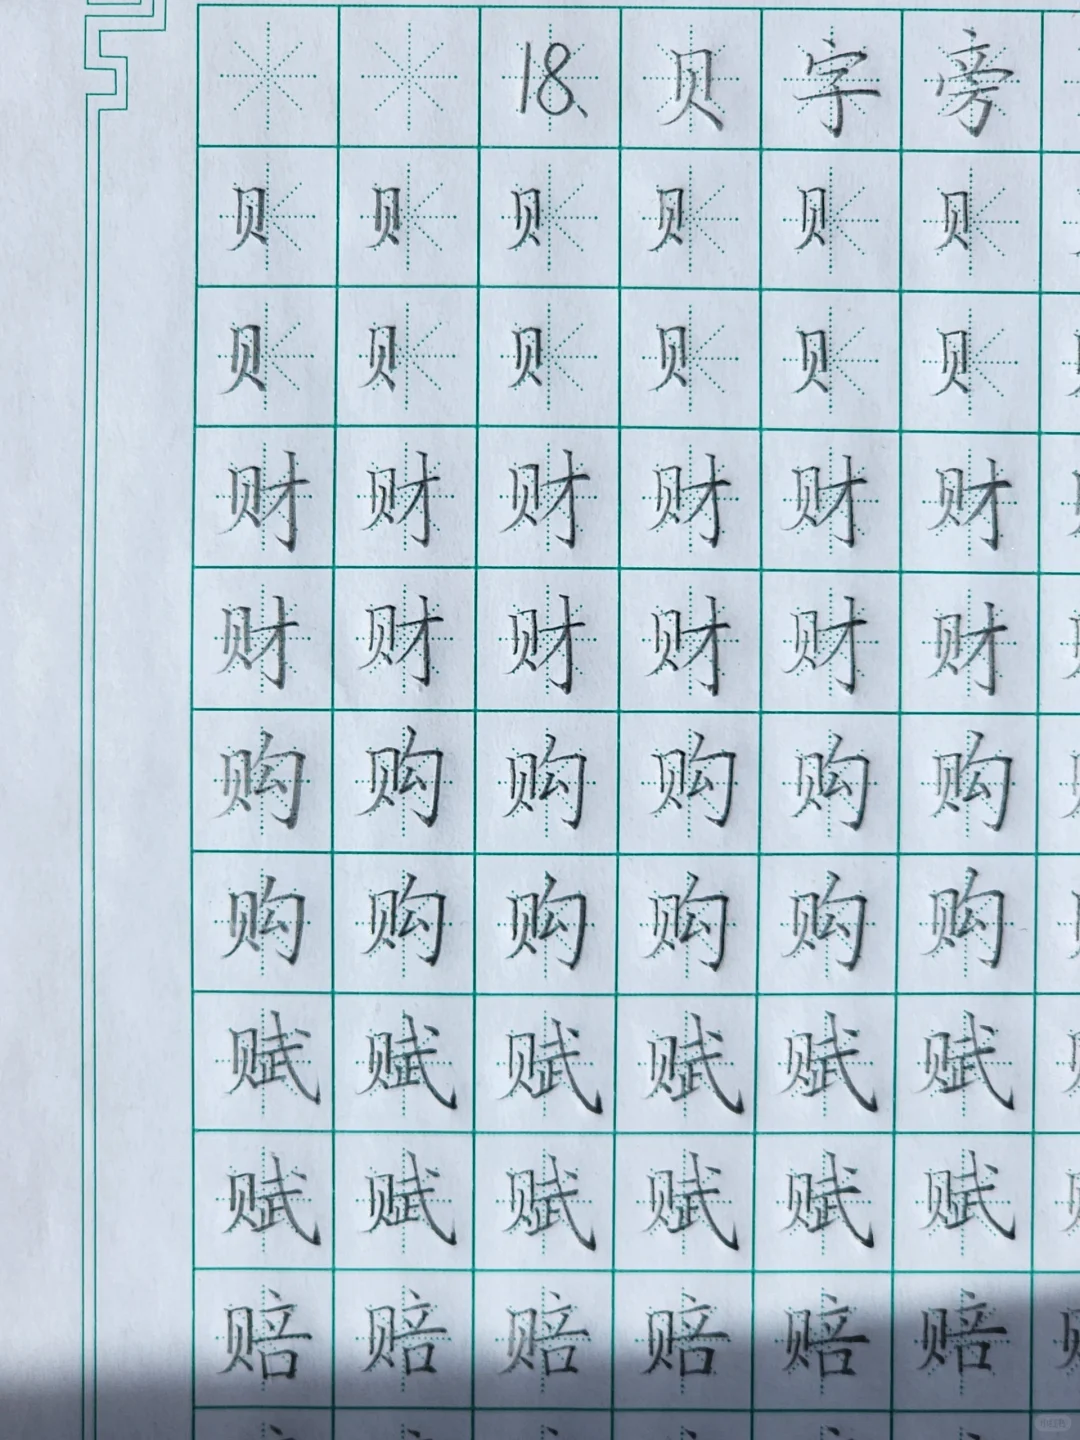 18、贝字旁
贝贝贝贝贝贝
贝贝贝贝贝贝
财财财财财财
财财财财财财
购购购购购购
购购购购购购
赋赋赋赋赋赋
赋赋赋赋赋赋
赔赔赔赔赔赔
小红书